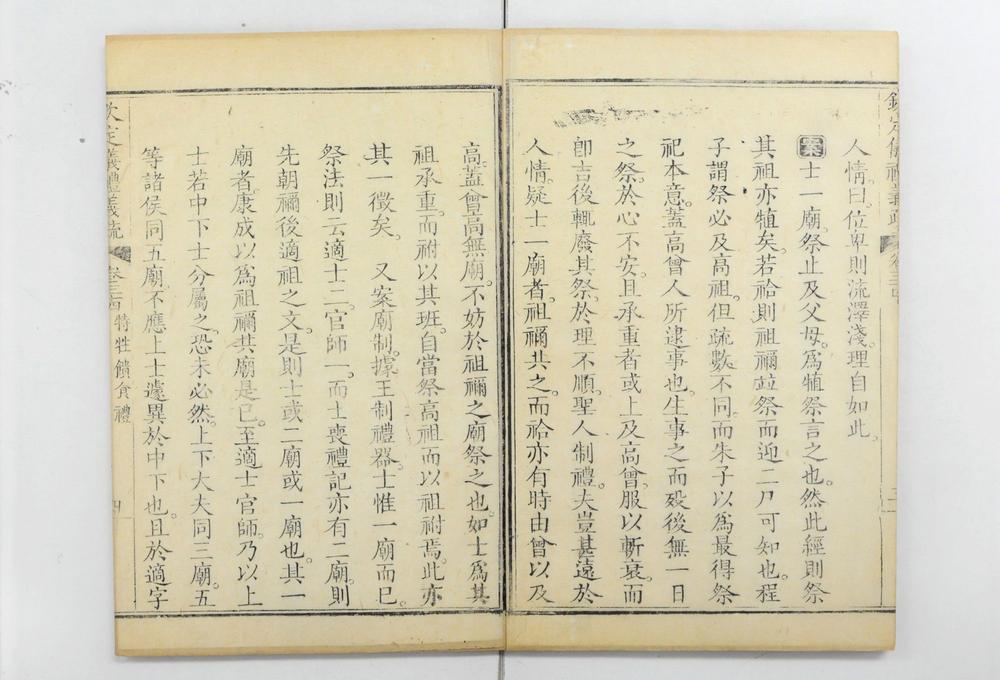 人情曰。位卑則流澤淺。理自如此。
案士一廟。祭止及父母。爲犆祭言之也。然此經則祭
其祖亦犆矣。若祫則祖禰竝祭而迎二尸可知也。程
子謂祭必及高祖。但疏數不同。而朱子以爲最得祭
祀本意。蓋高曾人所逮事也。生事之而殁後無一日
之祭。於心不安。且承重者或上及高曾。服以斬衰。而
卽吉後輒廢其祭。於理不順。聖人制禮。夫豈甚遠於
人情。疑士一廟者。祖禰共之。而祫亦有時由曾以及
高。蓋曾高無廟。不妨於祖禰之廟祭之也。如士爲其
祖承重。而祔以其班。自當祭高祖而以祖祔焉。此亦
其一徵矣。 又案廟制。據王制禮器。士惟一廟而已。
祭法則云適士二。官師一。而士喪禮記亦有二廟。則
先朝禰後適祖之文。是則士或二廟或一廟也。其一
廟者。康成以爲祖禰共廟是已。至適士官師。乃以上
士若中下士分屬之。恐未必然。上下大夫同三廟。五
等諸侯同五廟。不應上士遽異於中下也。且於適字
欽定儀禮義疏
卷三十四 特牲饋食禮
四